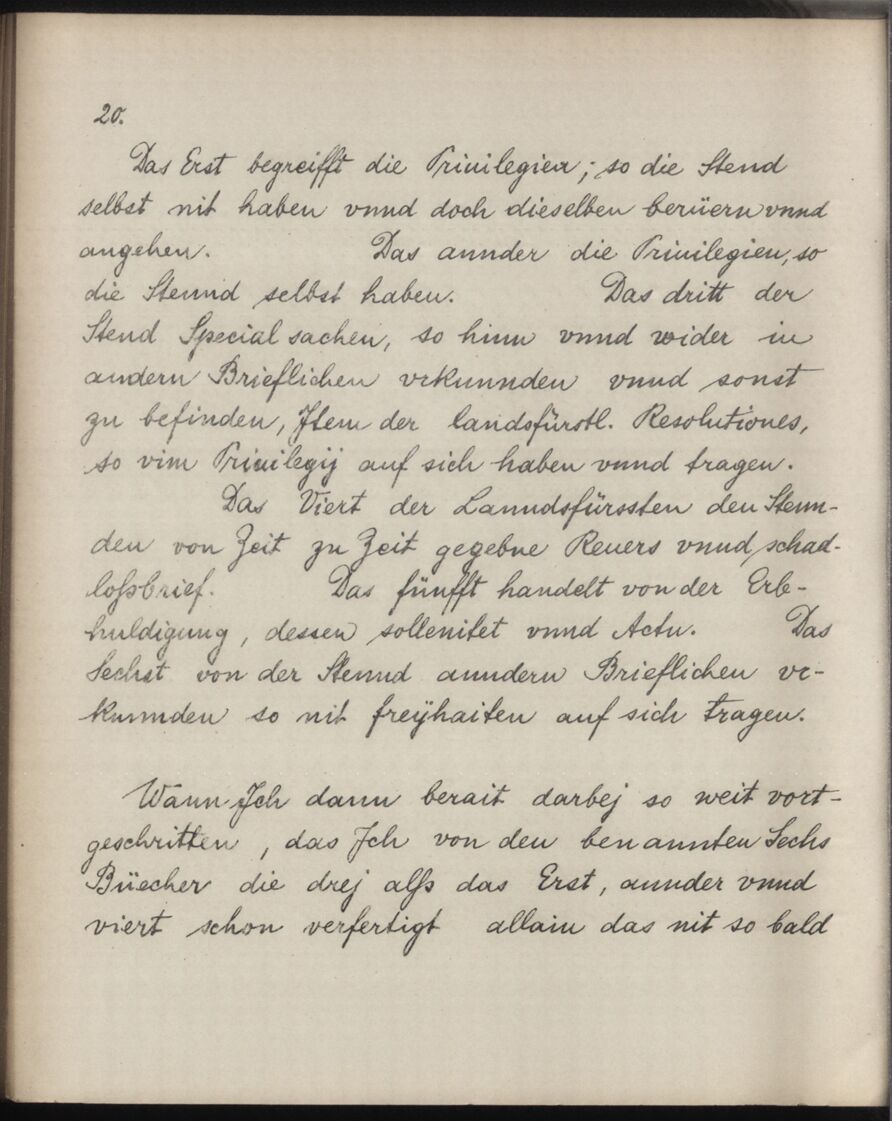 20.
Das Erst begreifft die Priuilegien; so die Stend
selbst nit haben vnnd doch dieselben berüern vnnd
angehen. Das annder die Priuilegien, so
die Stennd selbst haben. Das dritt der
Stend Special sachen, so hinn vnnd wider in
andern Brieflichen vrkunnden vnnd sonst
zu befinden, Jtem der landsfürstl. Resolutiones,
so vim Priuilegij auf sich haben vnnd tragen.
Das Viert der Lanndsfürssten den Stenn-
den von Zeit zu Zeit gegebne Reuers vnnd schad-
loßbrief. Das fünfft handelt von der Erb-
huldigung, dessen sollenitet vnnd Actu. Das
Sechst von der Stennd anndern Brieflichen vr-
kunnden so nit freÿhaiten auf sich tragen.
Wann Jch dann berait darbej so weit vort-
geschritten, das Jch von den benannten Sechs
Büecher die drej alß das Erst, annder vnnd
viert schon verfertigt allain das nit so bald